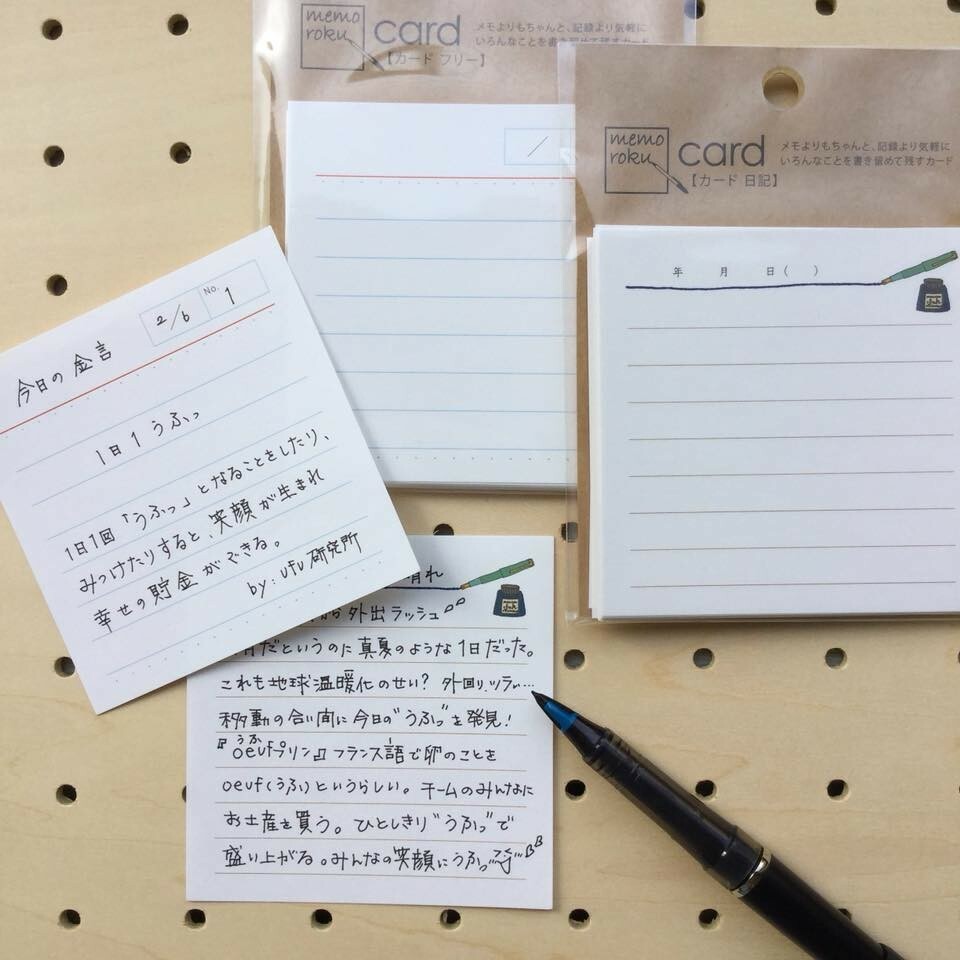 memo
roku
card
メモよりもちゃんと、記録より気軽に
いろんなことを書き留めて残すカード
【カード フリー】
/
memo
roku
card
メモよりもちゃんと、記録より気軽に
いろんなことを書き留めて残すカード
【カード 日記】
年 月 日( )
2/6 No. 1
今日の金言
1日1うふっ
1日1回「うふっ」となることをしたり、
みつけたりすると、笑顔が生まれ
幸せの貯金ができる。
by:ufu研究所
晴れ
外出ラッシュ
だというのに真夏のような1日だった。
これも地球温暖化のせい?外回り、ツラい…
移動の合い間に今日の"うふっ"を発見!
うふ
『oeufプリン』フランス語で卵のことを
oeuf(うふ)というらしい。チームのみんなに
お土産を買う。ひとしきり"うふっ"で
盛り上がる。みんなの笑顔にうふっ